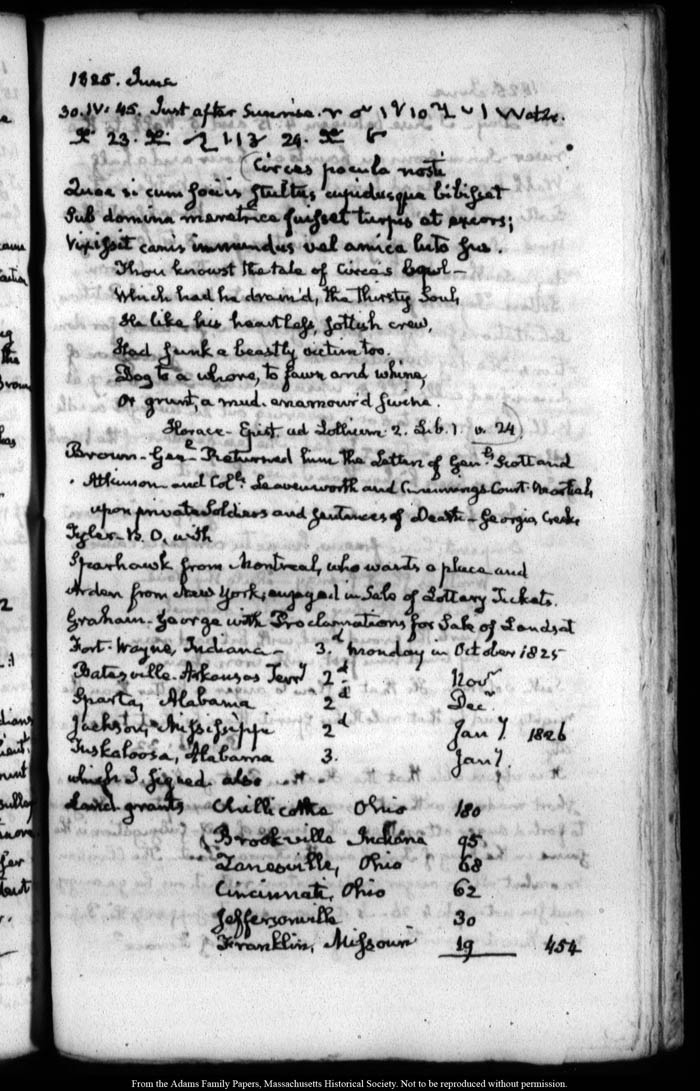 1825. June
30. IV: 45. Just after Sunrise. Watch.
23. 24.
(Circes pocula nosti
Quae si cum sociis stultus cupidusque bibisset
Sub domina meretrice fuisset turpis et excors;
Vixisset canis immundus vel amica luto sus.
Thou knowst the tale of Circe's bowl—
Which had he drain'd, the thirsty Soul,
He like his heartless, sottish crew,
Had sunk a beastly victim too.
Dog to a whore, to fawn and whine,
Or grunt, a mud-enamour'd swine.
Horace—Epist. ad Lollium. 2. Lib. 1. v. 24)
Brown—Genl. Returned him the Letters of Genls. Scott and
Atkinson—and Cols. Leavenworth and Cummings Court-Martials
upon private Soldiers and sentences of Death—Georgia Creeks
Tyler—B. O. with
Sparhawk from Montreal, who wants a place and
Arden from New York, engaged in Sale of Lottery Tickets.
Graham—George with Proclamations for Sale of Lands at
Fort-Wayne, Indiana— 3.d Monday in October 1825
Batesville. Arkansas Terry. 2d Novr
Sparta, Alabama 2d Decr.
Jackson, Mississippi 2d Jany. 1826
Tuskaloosa, Alabama 3. Jany.
which I signed. also
Land grants Chillicothe Ohio 180
Brookville Indiana 95.
Zanesville, Ohio 68
Cincinnati, Ohio 62
Jeffersonville 30
Franklin, Missouri 19 454
From the Adams Family Papers, Massachusetts Historical Society. Not to be reproduced without permission.